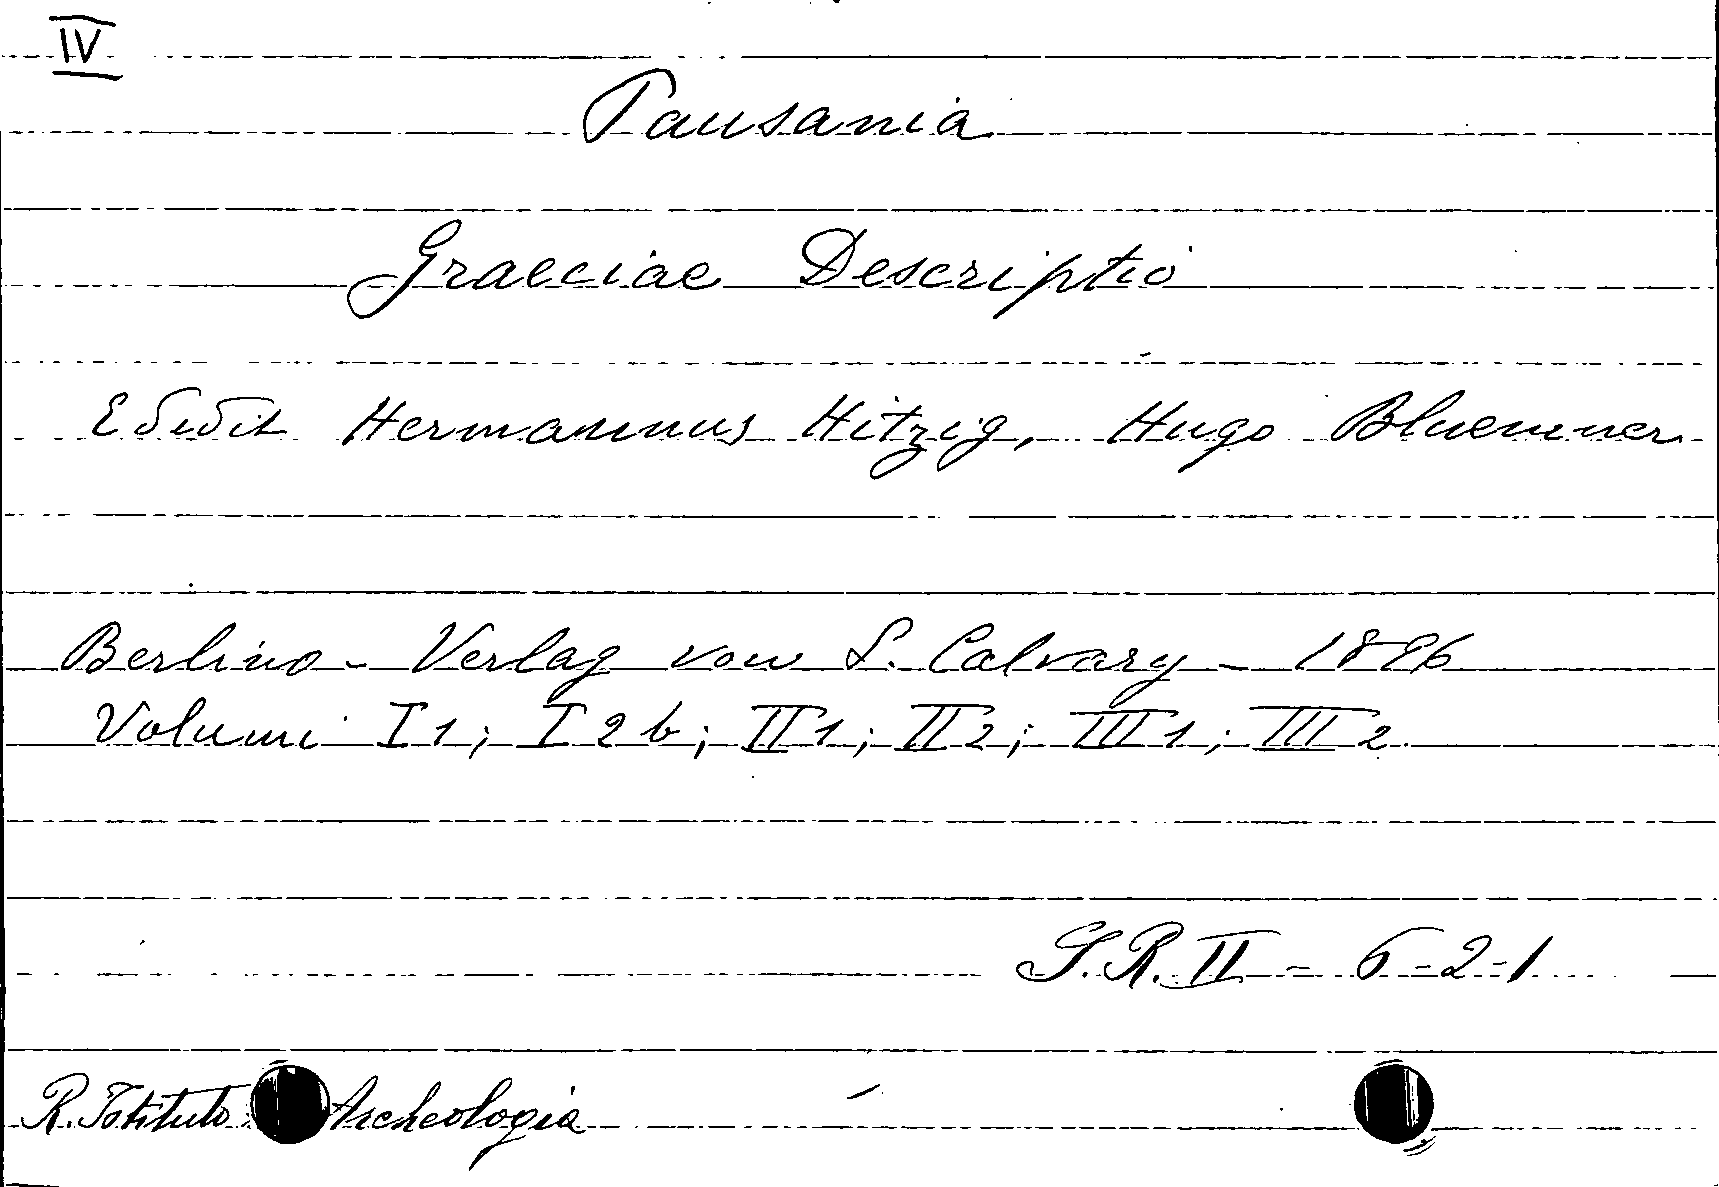 IV
Pausania
Graeciae Descriptio
Edidit Hermannus Hitzig, Hugo Bluemner
Berlino - Verlag von S. Calvary - 1896
Volumi I 1; I 2 b; II 1; II 2; III 1; III 2
S.R. II - 6-2-1
R. Istituto Archeologia